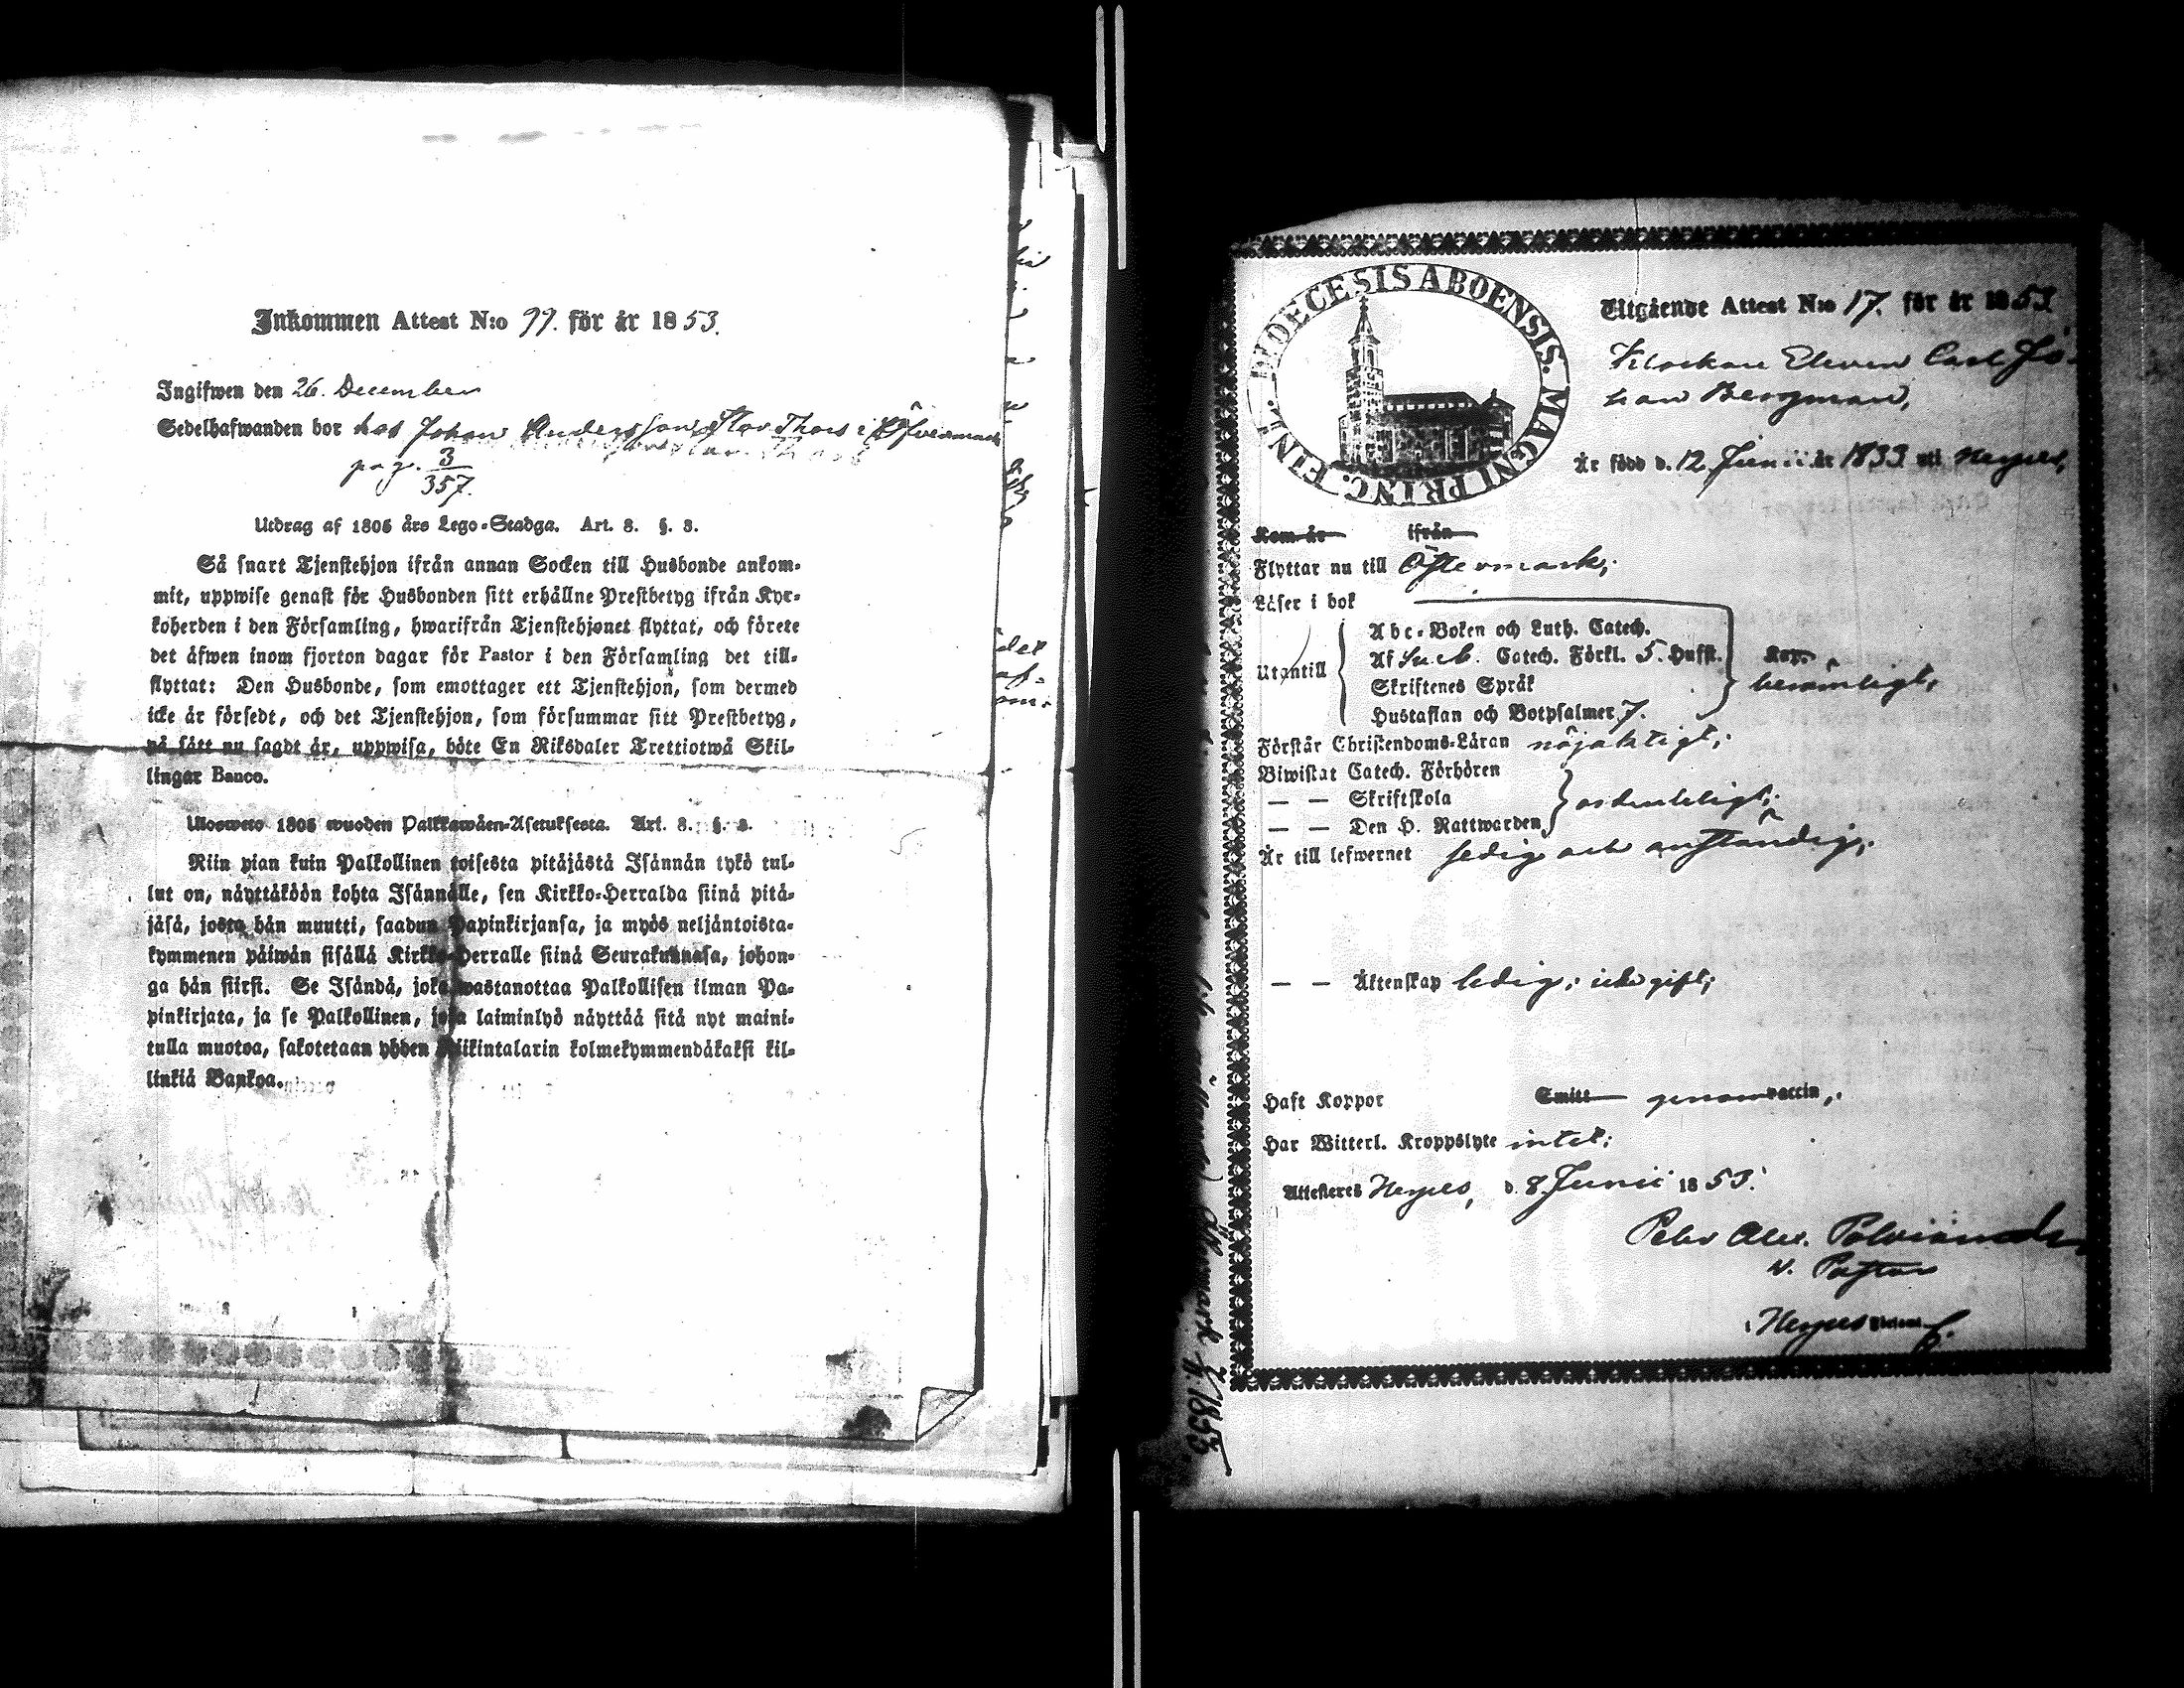 Inkommen Attest N:o 99. för år 1853.
Ingifwen den 26. December
Sedelhafwanden bor hos Johan Andersson Stor Thors i Öfvermark
pag. 3
357.
Utdrag af 1805 års Lego-Stadga. Art. 3. §. 3.
Så snart Tjenstehjon ifrån annan Socken till Husbonde ankom-
mit, uppwise genast för Husbonden sitt erhållne Prestbetyg ifrån Kyr-
koherden i den Församling, hwarifrån Tjenstehjonet flyttat, och förete
det äfwen inom fjorton dagar för Pastor i den Församling det till-
flyttat: Den Husbonde, som emottager ett Tjenstehjon, som dermed
icke är försedt, och det Tjenstehjon, som försummar sitt Prestbetyg,
på sätt nu sagdt är, uppwisa, böte En Riksdaler Trettiotwå Skil-
lingar Banco.
Ulosweto 1805 wuoden Palkkawäen-Asetuksesta. Art. 3. §. 3.
Niin pian kuin Palkollinen toisesta pitäjästä Isännän tykö tul-
lut on, näyttäköön kohta Isännälle, sen Kirkko-Herralda siinä pitä-
jäsä, josta hän muutti, saadun Papinkirjansa, ja myös neljäntoista-
kymmenen päiwän sisällä Kirkko-Herralle siinä Seurakunnasa, johon-
ga hän siirsi. Se Isändä, joka wastanottaa Palkollisen ilman Pa-
pinkirjata, ja se Palkollinen, joka laiminlyö näyttää sitä nyt maini-
tulla muotoa, sakotetaan yhden Riikintalarin kolmekymmendäkaksi kil-
linkiä Bankoa.
DIOECESIS ABOENSIS. MAGNI PRINC. FINL.
Utgående Attest N:o 17. för år 1853
Klockare Eleven Carl Jo-
han Bergman,
Är född d. 12 Junii år 1833 uti Nerpes,
Kom år ifrån
Flyttar nu till Östermark;
Läser i bok
Abc-Boken och Luth. Catech.
Utantill Af Sveb. Catech. Förkl. 5. Hufst.
Skriftenes Språk
Hustaflan och Botpsalmer 7.
berömligt;
Förstår Christendoms-Läran nöjaktigt;
Biwistat Catech. Förhören
— — Skriftskola
— — Den H. Nattwarden
ordenteligt;
Är till lefwernet sedig och anständig;
— — Äktenskap ledig; icke gift;
Haft Koppor Smitt genom vaccin;
Har Witterl. Kroppslyte intet;
Attesteres Nerpes, d. 8. Junii 1853.
v. Pastor
i Nerpes
1853.